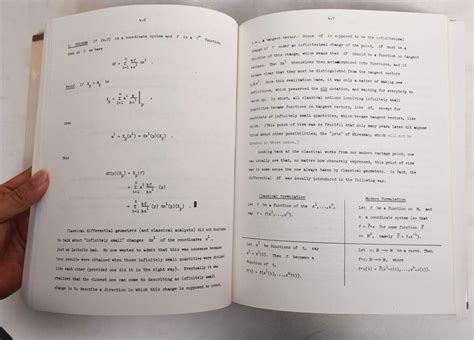 4-6
1. THEOREM. If (x,U) is a coordinate system and f is a C∞ function,
then on U we have
df = Σ ∂f/∂xⁱ dxⁱ .
Proof. If Xp ∈ Mp is
Xp = Σ aⁱ ∂/∂xⁱ|p ,
then
aⁱ = Xp(xⁱ) = dxⁱ(p)(Xp) .
But
df(p)(Xp) = Xp(f)
= Σ aⁱ ∂f/∂xⁱ (p)
= Σ ∂f/∂xⁱ (p) dxⁱ(p)(Xp) .
Classical differential geometers (and classical analysts) did not hesitate
to talk about "infinitely small" changes dxⁱ of the coordinates xⁱ ,
just as Leibnitz had. No one wanted to admit that this was nonsense because
true results were obtained when these infinitely small quantities were divided
into each other (provided one did it in the right way). Eventually it was
realized that the closest one can come to describing an infinitely
small change is to describe a direction in which this change is supposed to occur
4-7
i.e., a tangent vector. Since df is supposed to be the infinitesimal
change of f under an infinitesimal change of the point, df must be a
function of this change, which means that df should be a function on tangent
vectors. The dxⁱ themselves then metamorphosed into functions, and it
became clear that they must be distinguished from the tangent vectors
∂/∂xⁱ. Once this realization came, it was only a matter of making new
definitions, which preserved the old notation, and waiting for everybody to
catch up. In short, all classical notions involving infinitely small
quantities became functions on tangent vectors, like df, except for
quotients of infinitely small quantities, which became tangent vectors, like
Looking back at the classical works from our modern vantage point, one
can usually see that, no matter how obscurely expressed, this point of view
was in some sense the one always taken by classical geometers. In fact, the
differential df was usually introduced in the following way:
Classical Formulation
Modern Formulation
Let f be a function of the x¹,...,xⁿ,
say f = f(x¹,...,xⁿ).
Let f be a function on M, and
x a coordinate system (so that
Let xⁱ be functions of t, say
Then f becomes a
function of t,
Let c: ℝ → M be a curve. Then
f∘c: ℝ → ℝ, where